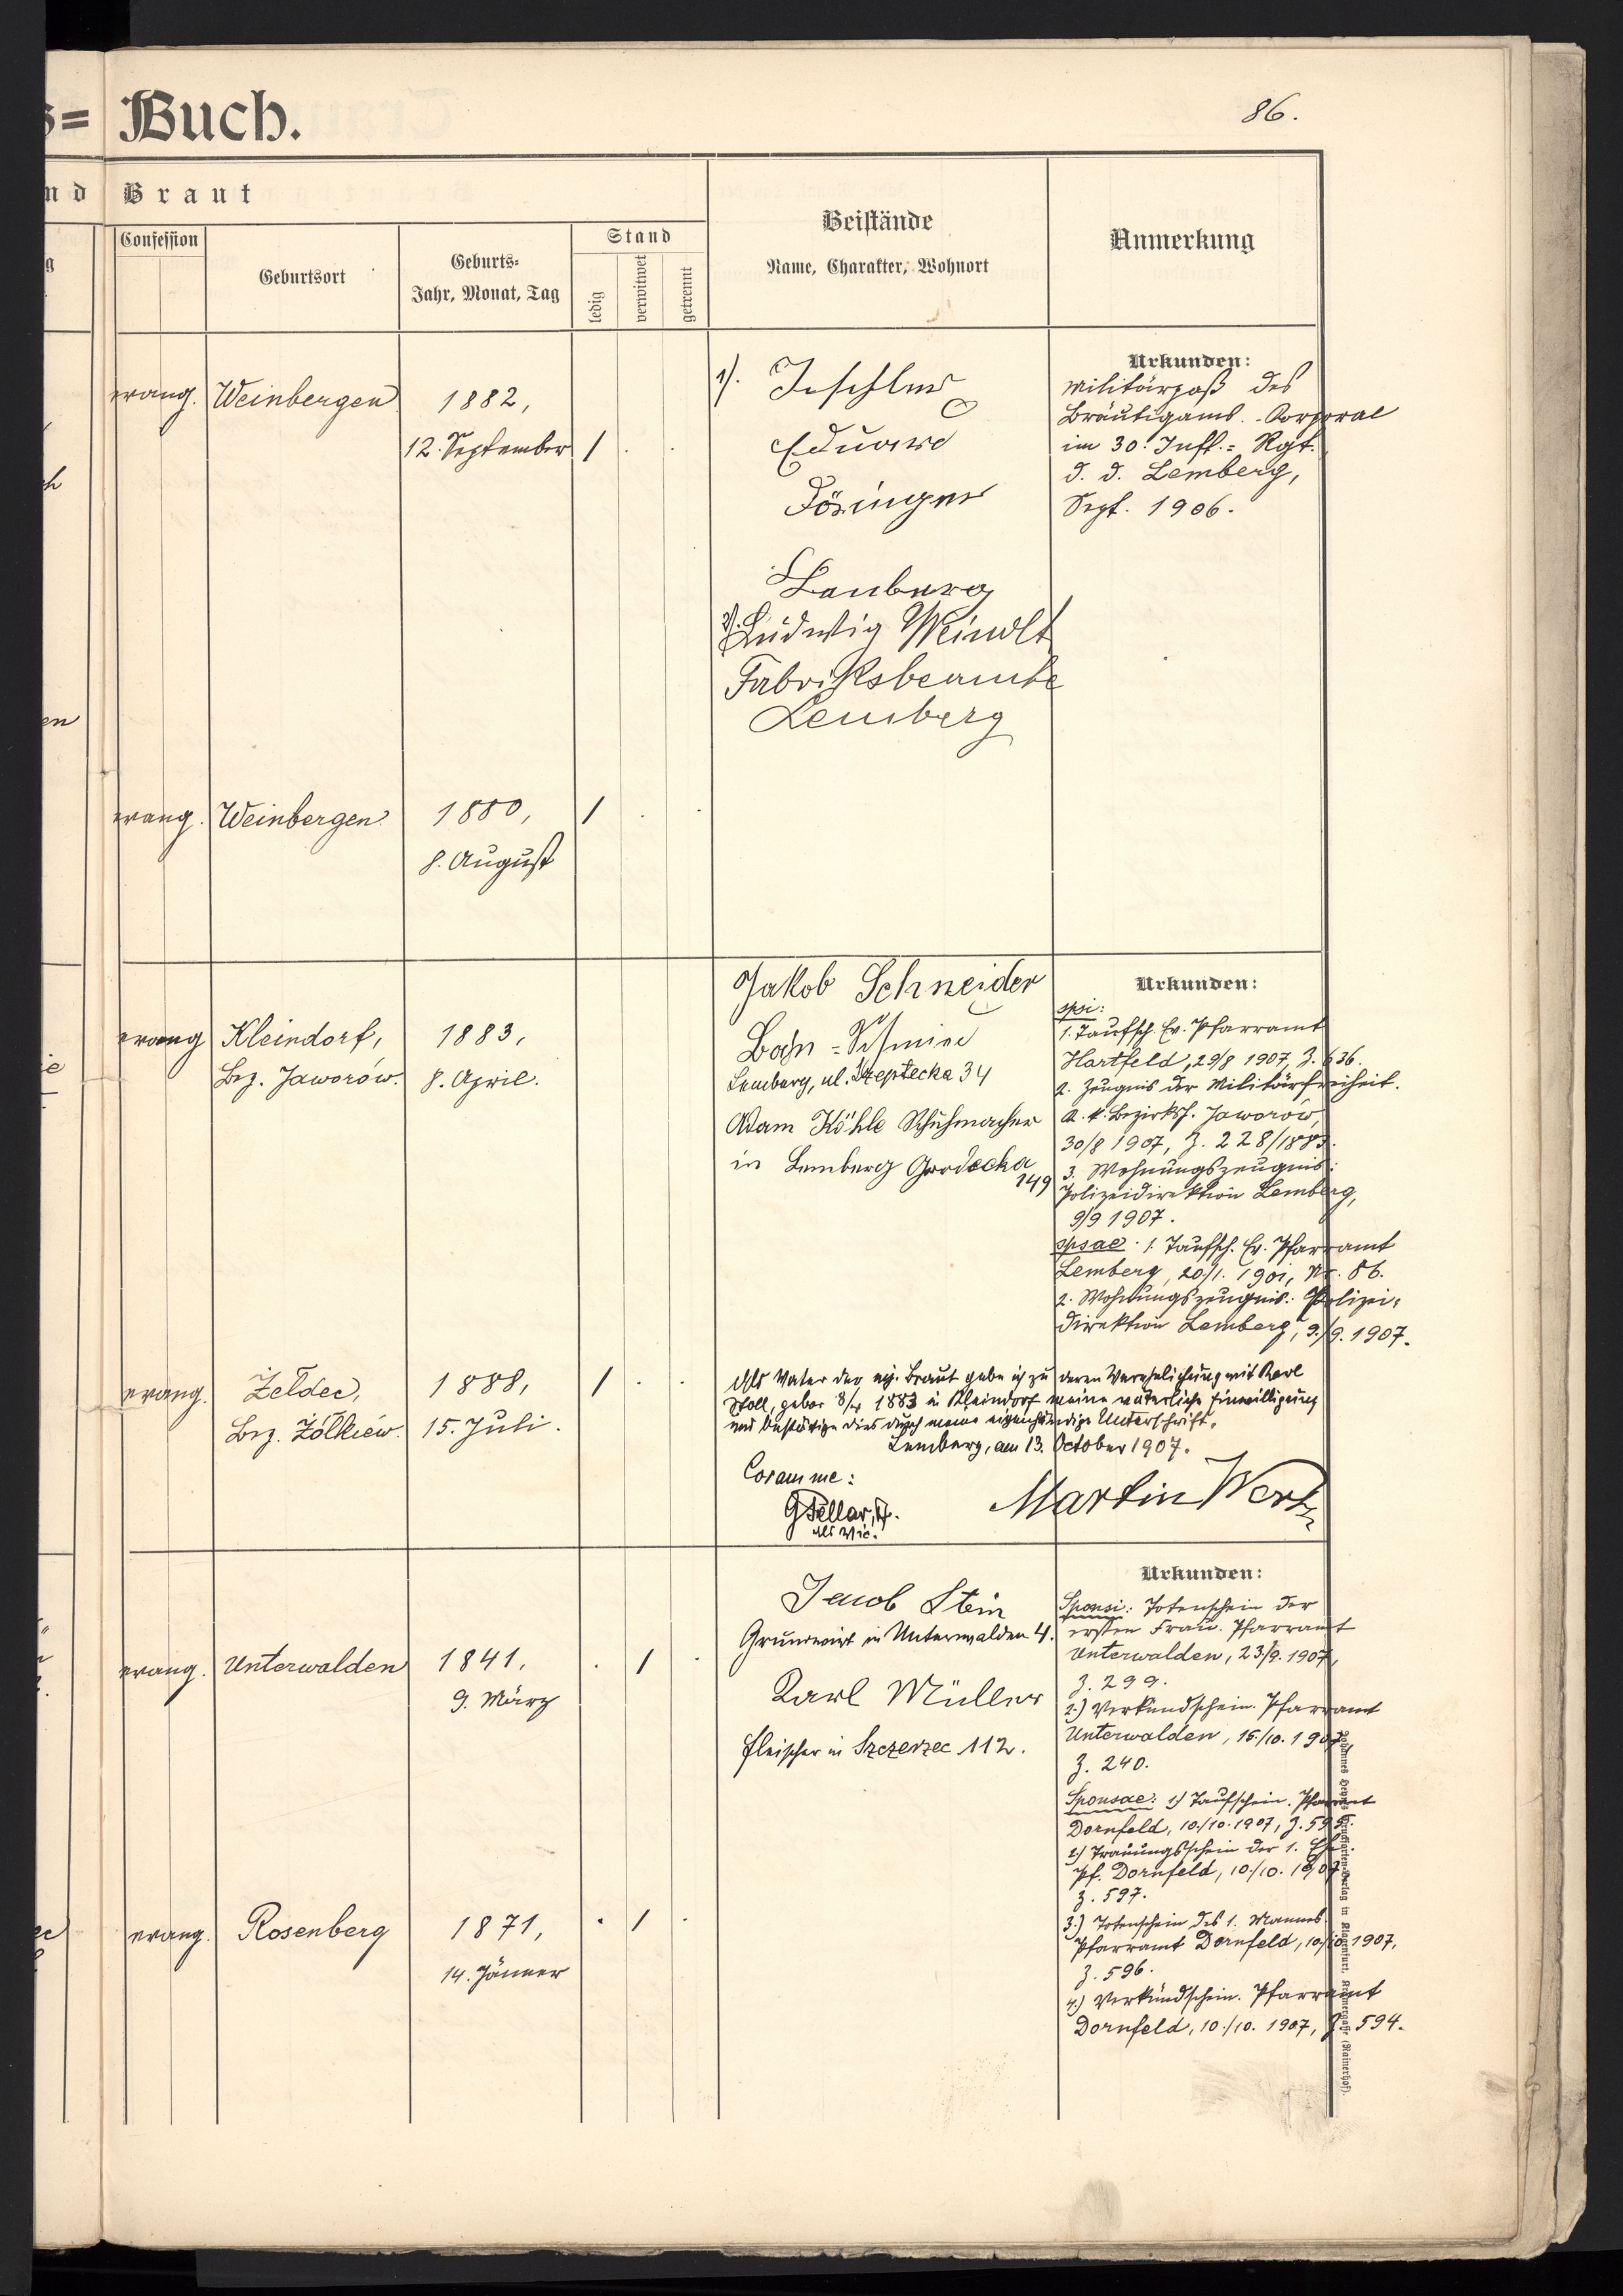 s= Buch.
86.
nd Braut
Confession
Geburtsort
Geburts-
Jahr, Monat, Tag
Stand
ledig
verwitwet
getrennt
Beistände
Name, Charakter, Wohnort
Anmerkung
evang. Weinbergen 1882,
12. September /
1).
Eduard
Lemberg
2). Ludwig Weindlt
Fabriksbeamte
Lemberg
Urkunden:
Militärpaß des
Bräutigams. Corporal
im 30. Inft.= Rgt.
d. d. Lemberg,
Sept. 1906.
evang. Weinbergen 1880, /
8. August
evang Kleindorf, 1883,
Bez. Jaworów. 8. April.
Jakob Schneider
Bahn=Schmied
Lemberg, ul. 34
Adam Köhle Schuhmacher
in Lemberg Grodecka
149
Urkunden:
spi:
1. Taufsch. Ev. Pfarramt
Hartfeld, 29/8 1907, Z. 636.
2. Zeugnis der Militärfreiheit.
Bezirksh. Jaworów,
30/8 1907, Z. 228/1883.
3. Wohnungszeugnis:
Polizeidirektion Lemberg,
9/9 1907.
spsae. 1. Taufsch. Ev. Pfarramt
Lemberg, 20/1. 1901, Nr. 86.
2. Wohnungszeugnis: Polizei=
direktion Lemberg, 9./9. 1907.
evang. Żeldec, 1888, /
Bez. Żółkiew. 15. Juli.
Als Vater der mj. Braut gebe ich zu deren Verehelichung mit Karl
Stoll, gebor 8/4 1883 in Kleindorf meine väterliche Einwilligung
und bestätige dies durch meine eigenhändige Unterschrift.
Lemberg, am 13. October 1907.
Coram me:
als Vic.
Martin Wertz
evang. Unterwalden 1841, . /
9. März
Jacob Stein
Grundwirt in Unterwalden 4.
Karl Müller
Fleischer in Szczerzec 112.
Urkunden:
Sponsi: Totenschein der
ersten Frau. Pfarramt
Unterwalden, 23/9. 1907,
Z. 299.
2.) Verkündschein. Pfarramt
Unterwalden, 15./10. 1907,
Z. 240.
Sponsae: 1.) Taufschein. Pfarramt
Dornfeld, 10./10. 1907, Z. 595.
2.) Trauungsschein der 1. Ehe.
Pf. Dornfeld, 10./10. 1907
Z. 597.
3.) Totenschein des 1. Mannes.
Pfarramt Dornfeld, 10./10. 1907,
Z. 596.
4.) Verkündschein. Pfarramt
Dornfeld, 10./10. 1907, Z. 594.
evang. Rosenberg 1871, . / .
14. Jänner